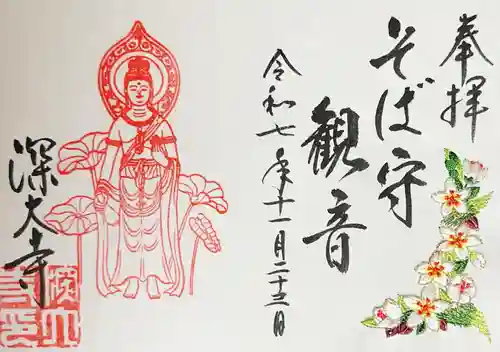 奉拝
そば守
観音
令和七年十一月二十三日
深大寺